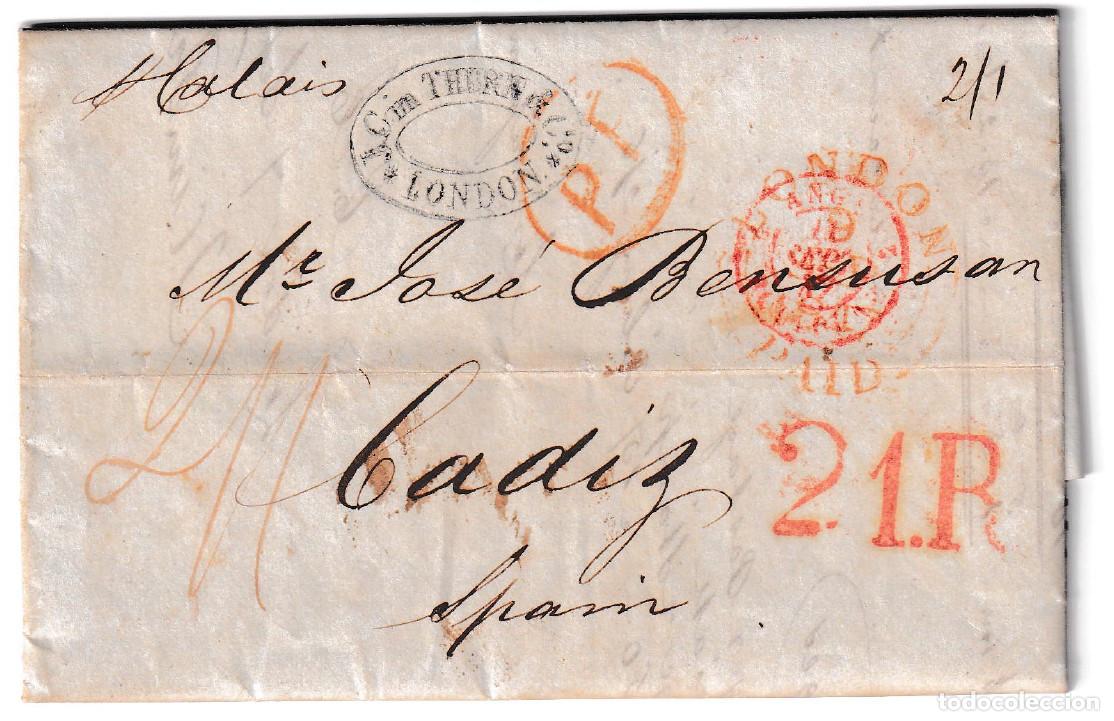 Calais
2/1
J. C. im THURN & Co.
LONDON
P F
LONDON
ANGL.
SEPT
PAID
Mr. José Bensusan
2/1
Cadiz
21.R
Spain
todocoleccion